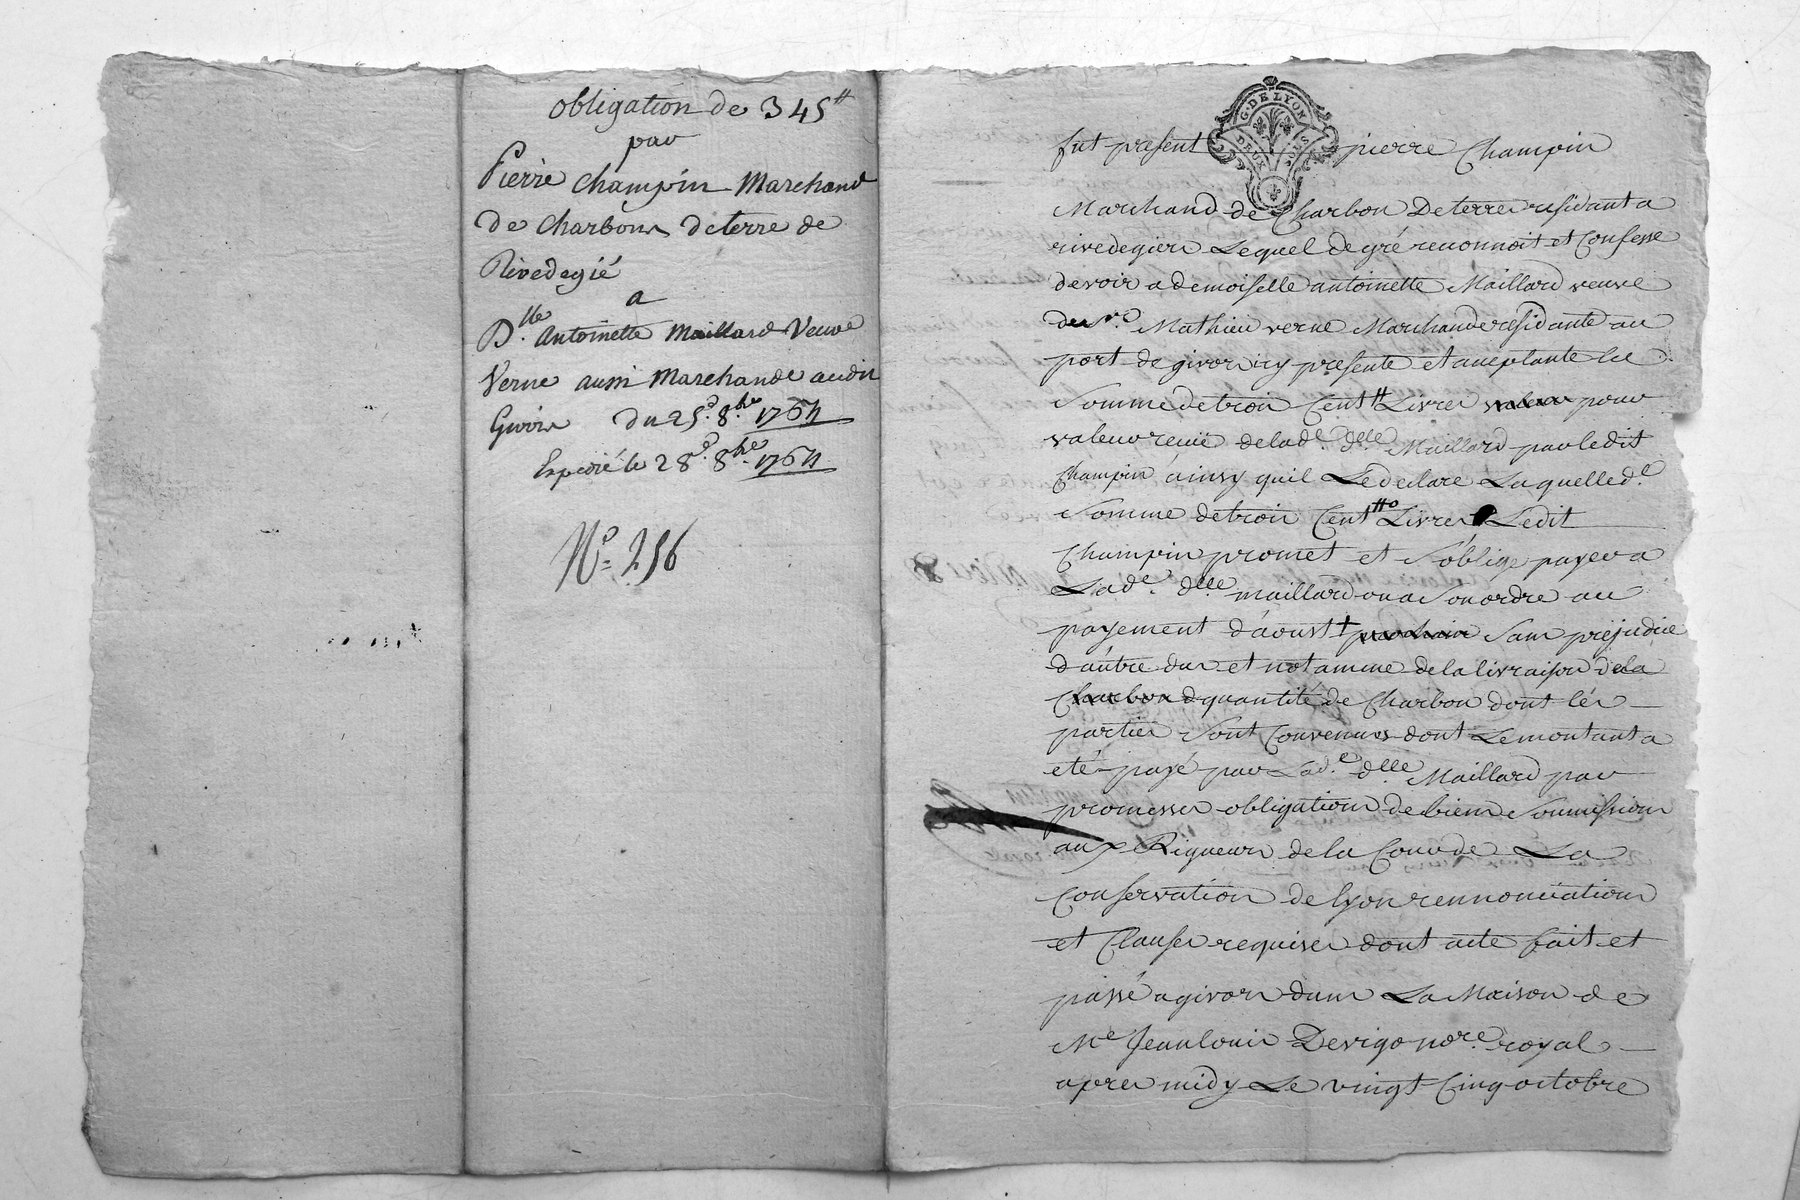 obligation de 345#
par
Pierre Champin Marchand
De Charbons deterre de
Rivedegié
a
D.lle Antoinette Maillard Veuve
Verne aussi Marchande audit
Givors Du 25.e 8.bre 1764
Expedié le 28.e 8.bre 1764
N.o 256
G. DE LYON
DEUX SOLS
fut présent pierre Champin
Marchand de Charbon Deterre residant a
rivedegier Lequel de gré reconnoit et Confesse
devoir a demoiselle antoinette Maillard veuve
de s.r Mathieu verne Marchande residante au
port de givors icy presente et acceptante la
Somme de trois Cent # Livres valeur pour
valeur reçüe de lad.e d.elle Maillard par ledit
Champin ainsy quil Le declare Laquelle d.e
Somme de trois Cent # Livres Ledit
Champin promet et s'oblige payer a
Lad.e d.elle maillard ou a son ordre au
payement d'aoust + prochain sans préjudice
d'autre du et notamme de la livraison de la
Charbon d quantité de Charbon dont les
parties sont Convenues dont Le montant a
eté payé par Lad.e d.elle Maillard par
promesses obligation de biens soumission
aux Rigueurs de la Cour de La
Conservation de lyon rennonciation
et Clauses requises dont acte fait et
passé a givors dans La Maison de
M.e Jean louis Devigo no.re royal
apres midy Le vingt Cinq octobre